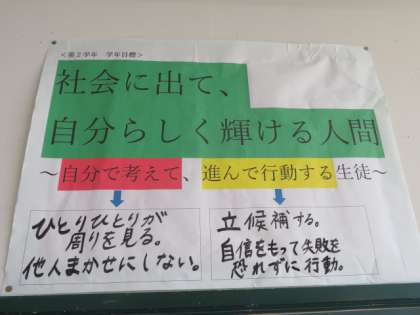 <第2学年 学年目標>
社会に出て、
自分らしく輝ける人間
～自分で考えて、進んで行動する生徒～
ひとりひとりが
周りを見る。
他人まかせにしない。
立候補する。
自信をもって失敗を
恐れずに行動。